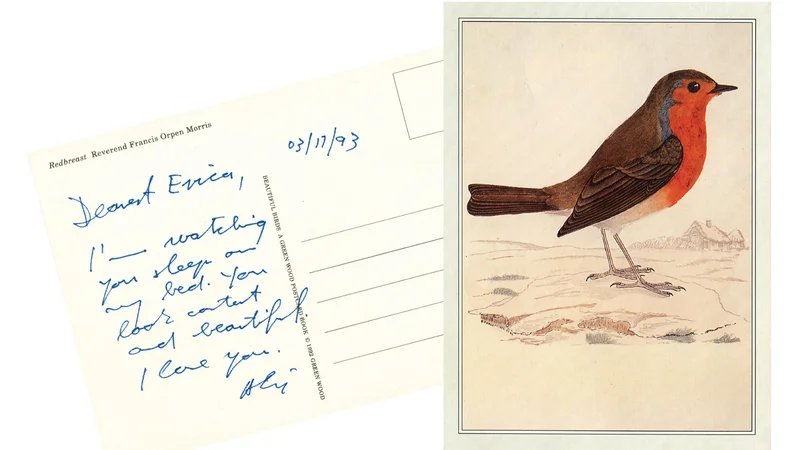 Redbreast Reverend Francis Orpen Morris
03/17/93
Dearest Erica,
I'm watching
you sleep on
my bed. You
look content
and beautiful.
I love you.
BEAUTIFUL BIRDS A GREEN WOOD POSTCARD BOOK © 1992 GREEN WOOD